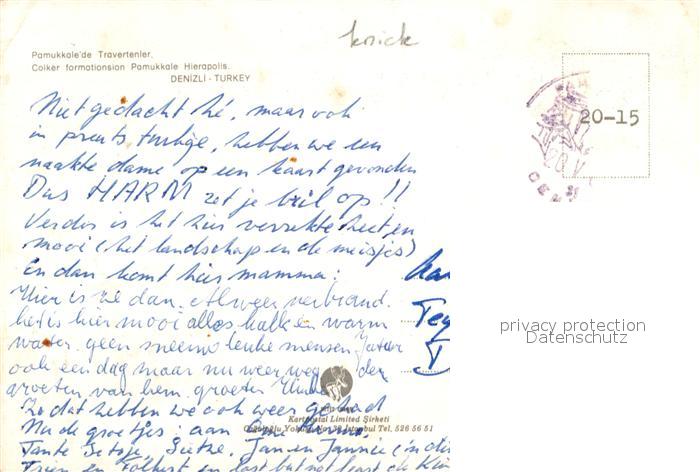 knick
Pamukkale'de Travertenler.
Colker formationsion Pamukkale Hierapolis.
DENİZLİ - TURKEY
20-15
Niet gedacht hé, maar ook
in preuts turkije, hebben we een
naakte dame op een kaart gevonden
Dus HARM zet je bril op!!
Verder is het hier verrekte heet en
mooi (het landschap en de meisjes)
En dan komt hier mamma:
Hier is ze dan. Alweer verbrand.
het is hier mooi alles kalk en warm
water. geen sneeuw leuke mensen
ook een dag maar nu weer weg de
groeten van hem. groeten
Zo dat hebben we ook weer gehad
Nu de groetjes: aan
Tante Jan en Jannie
en last but not least
Kartpostal Limited Şirketi
Tel. 526 56 51
privacy protection
Datenschutz